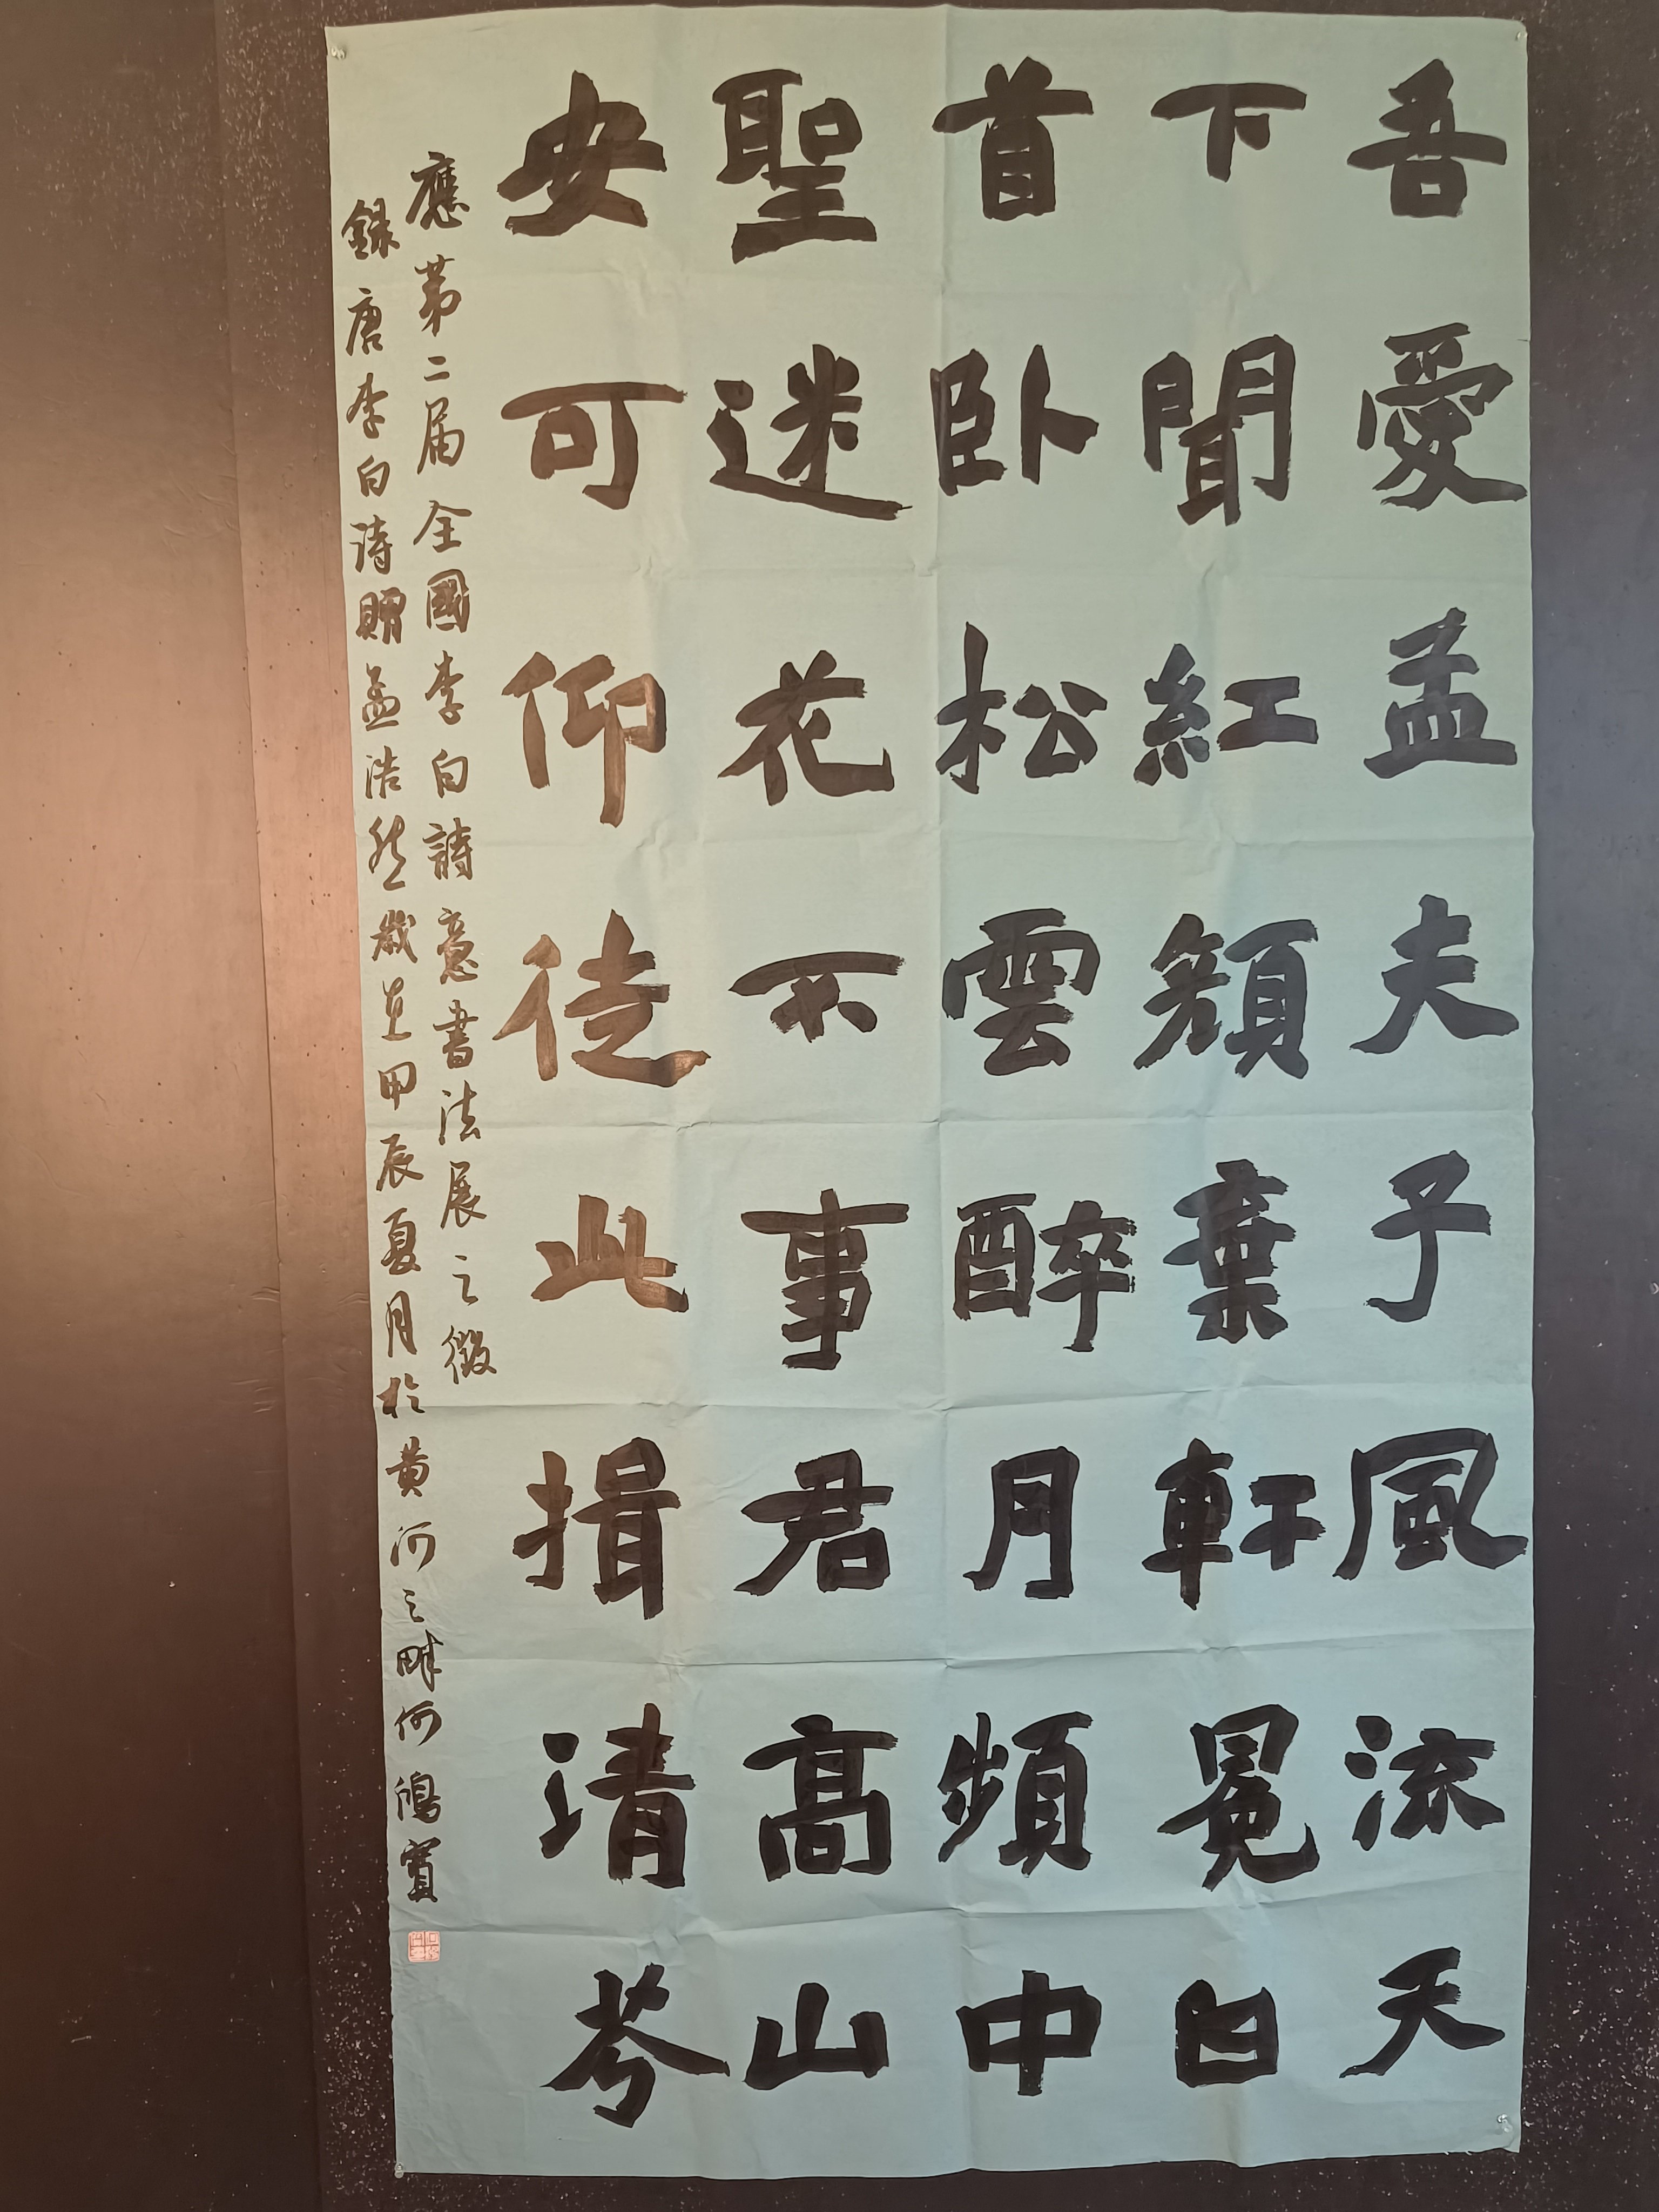 吾愛孟夫子風流天
下聞紅顏棄軒冕白
首卧松雲醉月頻中
聖迷花不事君高山
安可仰徒此揖清芬
應第二届全國李白詩意書法展之徵
録唐李白诗贈孟浩然歲在甲辰夏月於黄河之畔何鴻賓